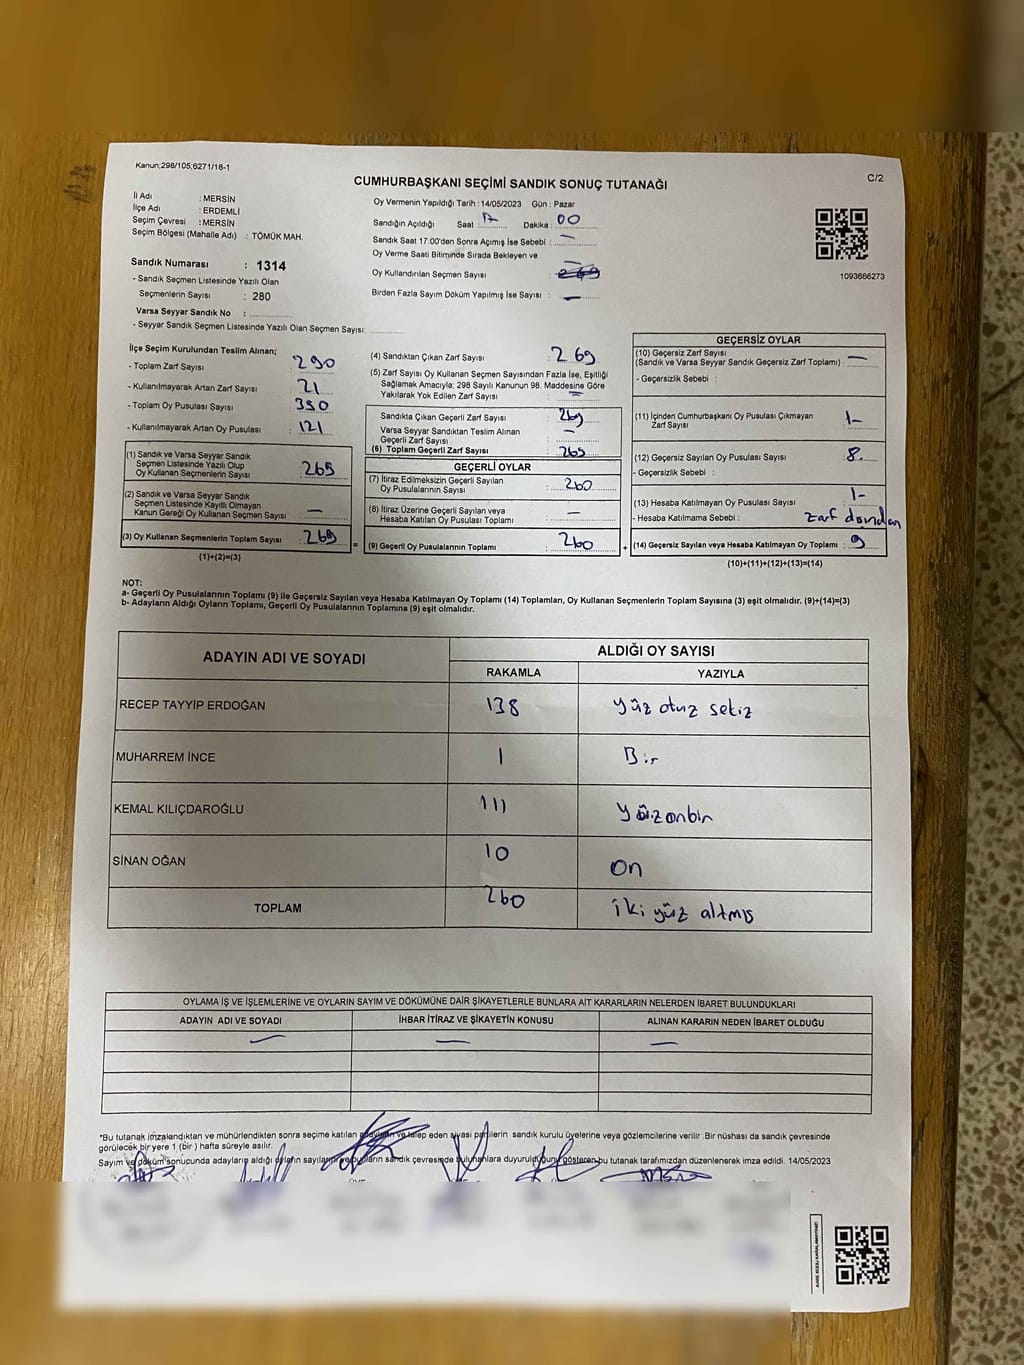 Kanun;298/105;6271/18-1
C/2
CUMHURBAŞKANI SEÇİMİ SANDIK SONUÇ TUTANAĞI
İl Adı : MERSİN
İlçe Adı : ERDEMLİ
Seçim Çevresi : MERSİN
Seçim Bölgesi (Mahalle Adı) : TÖMÜK MAH.
Sandık Numarası : 1314
- Sandık Seçmen Listesinde Yazılı Olan
Seçmenlerin Sayısı : 280
Varsa Seyyar Sandık No :
- Seyyar Sandık Seçmen Listesinde Yazılı Olan Seçmen Sayısı:
Oy Vermenin Yapıldığı Tarih : 14/05/2023 Gün : Pazar
Sandığın Açıldığı Saat : 17 Dakika : 00
Sandık Saat 17:00'den Sonra Açımış İse Sebebi : —
Oy Verme Saati Bitiminde Sırada Bekleyen ve
Oy Kullandırılan Seçmen Sayısı : —
Birden Fazla Sayım Döküm Yapılmış İse Sayısı : —
1093666273
İlçe Seçim Kurulundan Teslim Alınan;
- Toplam Zarf Sayısı : 290
- Kullanılmayarak Artan Zarf Sayısı : 21
- Toplam Oy Pusulası Sayısı : 390
- Kullanılmayarak Artan Oy Pusulası : 121
(1) Sandık ve Varsa Seyyar Sandık
Seçmen Listesinde Yazılı Olup
Oy Kullanan Seçmenlerin Sayısı : 269
(2) Sandık ve Varsa Seyyar Sandık
Seçmen Listesinde Kayıtlı Olmayan
Kanun Gereği Oy Kullanan Seçmen Sayısı : —
(3) Oy Kullanan Seçmenlerin Toplam Sayısı : 269
(1)+(2)=(3)
(4) Sandıktan Çıkan Zarf Sayısı : 269
(5) Zarf Sayısı Oy Kullanan Seçmen Sayısından Fazla İse, Eşitliği
Sağlamak Amacıyla; 298 Sayılı Kanunun 98. Maddesine Göre
Yakılarak Yok Edilen Zarf Sayısı : —
Sandıkta Çıkan Geçerli Zarf Sayısı : 269
Varsa Seyyar Sandıktan Teslim Alınan
Geçerli Zarf Sayısı : —
(6) Toplam Geçerli Zarf Sayısı : 269
GEÇERLİ OYLAR
(7) İtiraz Edilmeksizin Geçerli Sayılan
Oy Pusulalarının Sayısı : 260
(8) İtiraz Üzerine Geçerli Sayılan veya
Hesaba Katılan Oy Pusulası Toplamı : —
= (9) Geçerli Oy Pusulalarının Toplamı : 260 +
GEÇERSİZ OYLAR
(10) Geçersiz Zarf Sayısı
(Sandık ve Varsa Seyyar Sandık Geçersiz Zarf Toplamı) : —
- Geçersizlik Sebebi :
(11) İçinden Cumhurbaşkanı Oy Pusulası Çıkmayan
Zarf Sayısı : 1-
(12) Geçersiz Sayılan Oy Pusulası Sayısı : 8.
- Geçersizlik Sebebi :
(13) Hesaba Katılmayan Oy Pusulası Sayısı : 1-
- Hesaba Katılmama Sebebi : Zarf dışından
(14) Geçersiz Sayılan veya Hesaba Katılmayan Oy Toplamı : 9
(10)+(11)+(12)+(13)=(14)
NOT:
a- Geçerli Oy Pusulalarının Toplamı (9) ile Geçersiz Sayılan veya Hesaba Katılmayan Oy Toplamı (14) Toplamları, Oy Kullanan Seçmenlerin Toplam Sayısına (3) eşit olmalıdır. (9)+(14)=(3)
b- Adayların Aldığı Oyların Toplamı, Geçerli Oy Pusulalarının Toplamına (9) eşit olmalıdır.
ADAYIN ADI VE SOYADI ALDIĞI OY SAYISI
RAKAMLA YAZIYLA
RECEP TAYYİP ERDOĞAN 138 yüz otuz sekiz
MUHARREM İNCE 1 Bir
KEMAL KILIÇDAROĞLU 111 yüzonbir
SİNAN OĞAN 10 on
TOPLAM 260 iki yüz altmış
OYLAMA İŞ VE İŞLEMLERİNE VE OYLARIN SAYIM VE DÖKÜMÜNE DAİR ŞİKAYETLERLE BUNLARA AİT KARARLARIN NELERDEN İBARET BULUNDUKLARI
ADAYIN ADI VE SOYADI İHBAR İTİRAZ VE ŞİKAYETİN KONUSU ALINAN KARARIN NEDEN İBARET OLDUĞU
— — —
*Bu tutanak imzalandıktan ve mühürlendikten sonra seçime katılan adayların ve talep eden siyasi partilerin sandık kurulu üyelerine veya gözlemcilerine verilir .Bir nüshası da sandık çevresinde
görülecek bir yere 1 (bir ) hafta süreyle asılır.
Sayım ve döküm sonucunda adayların aldığı oyların sayıları ve bunların sandık çevresinde bulunanlara duyurulduğunu gösteren bu tutanak tarafımızdan düzenlenerek imza edildi. 14/05/2023